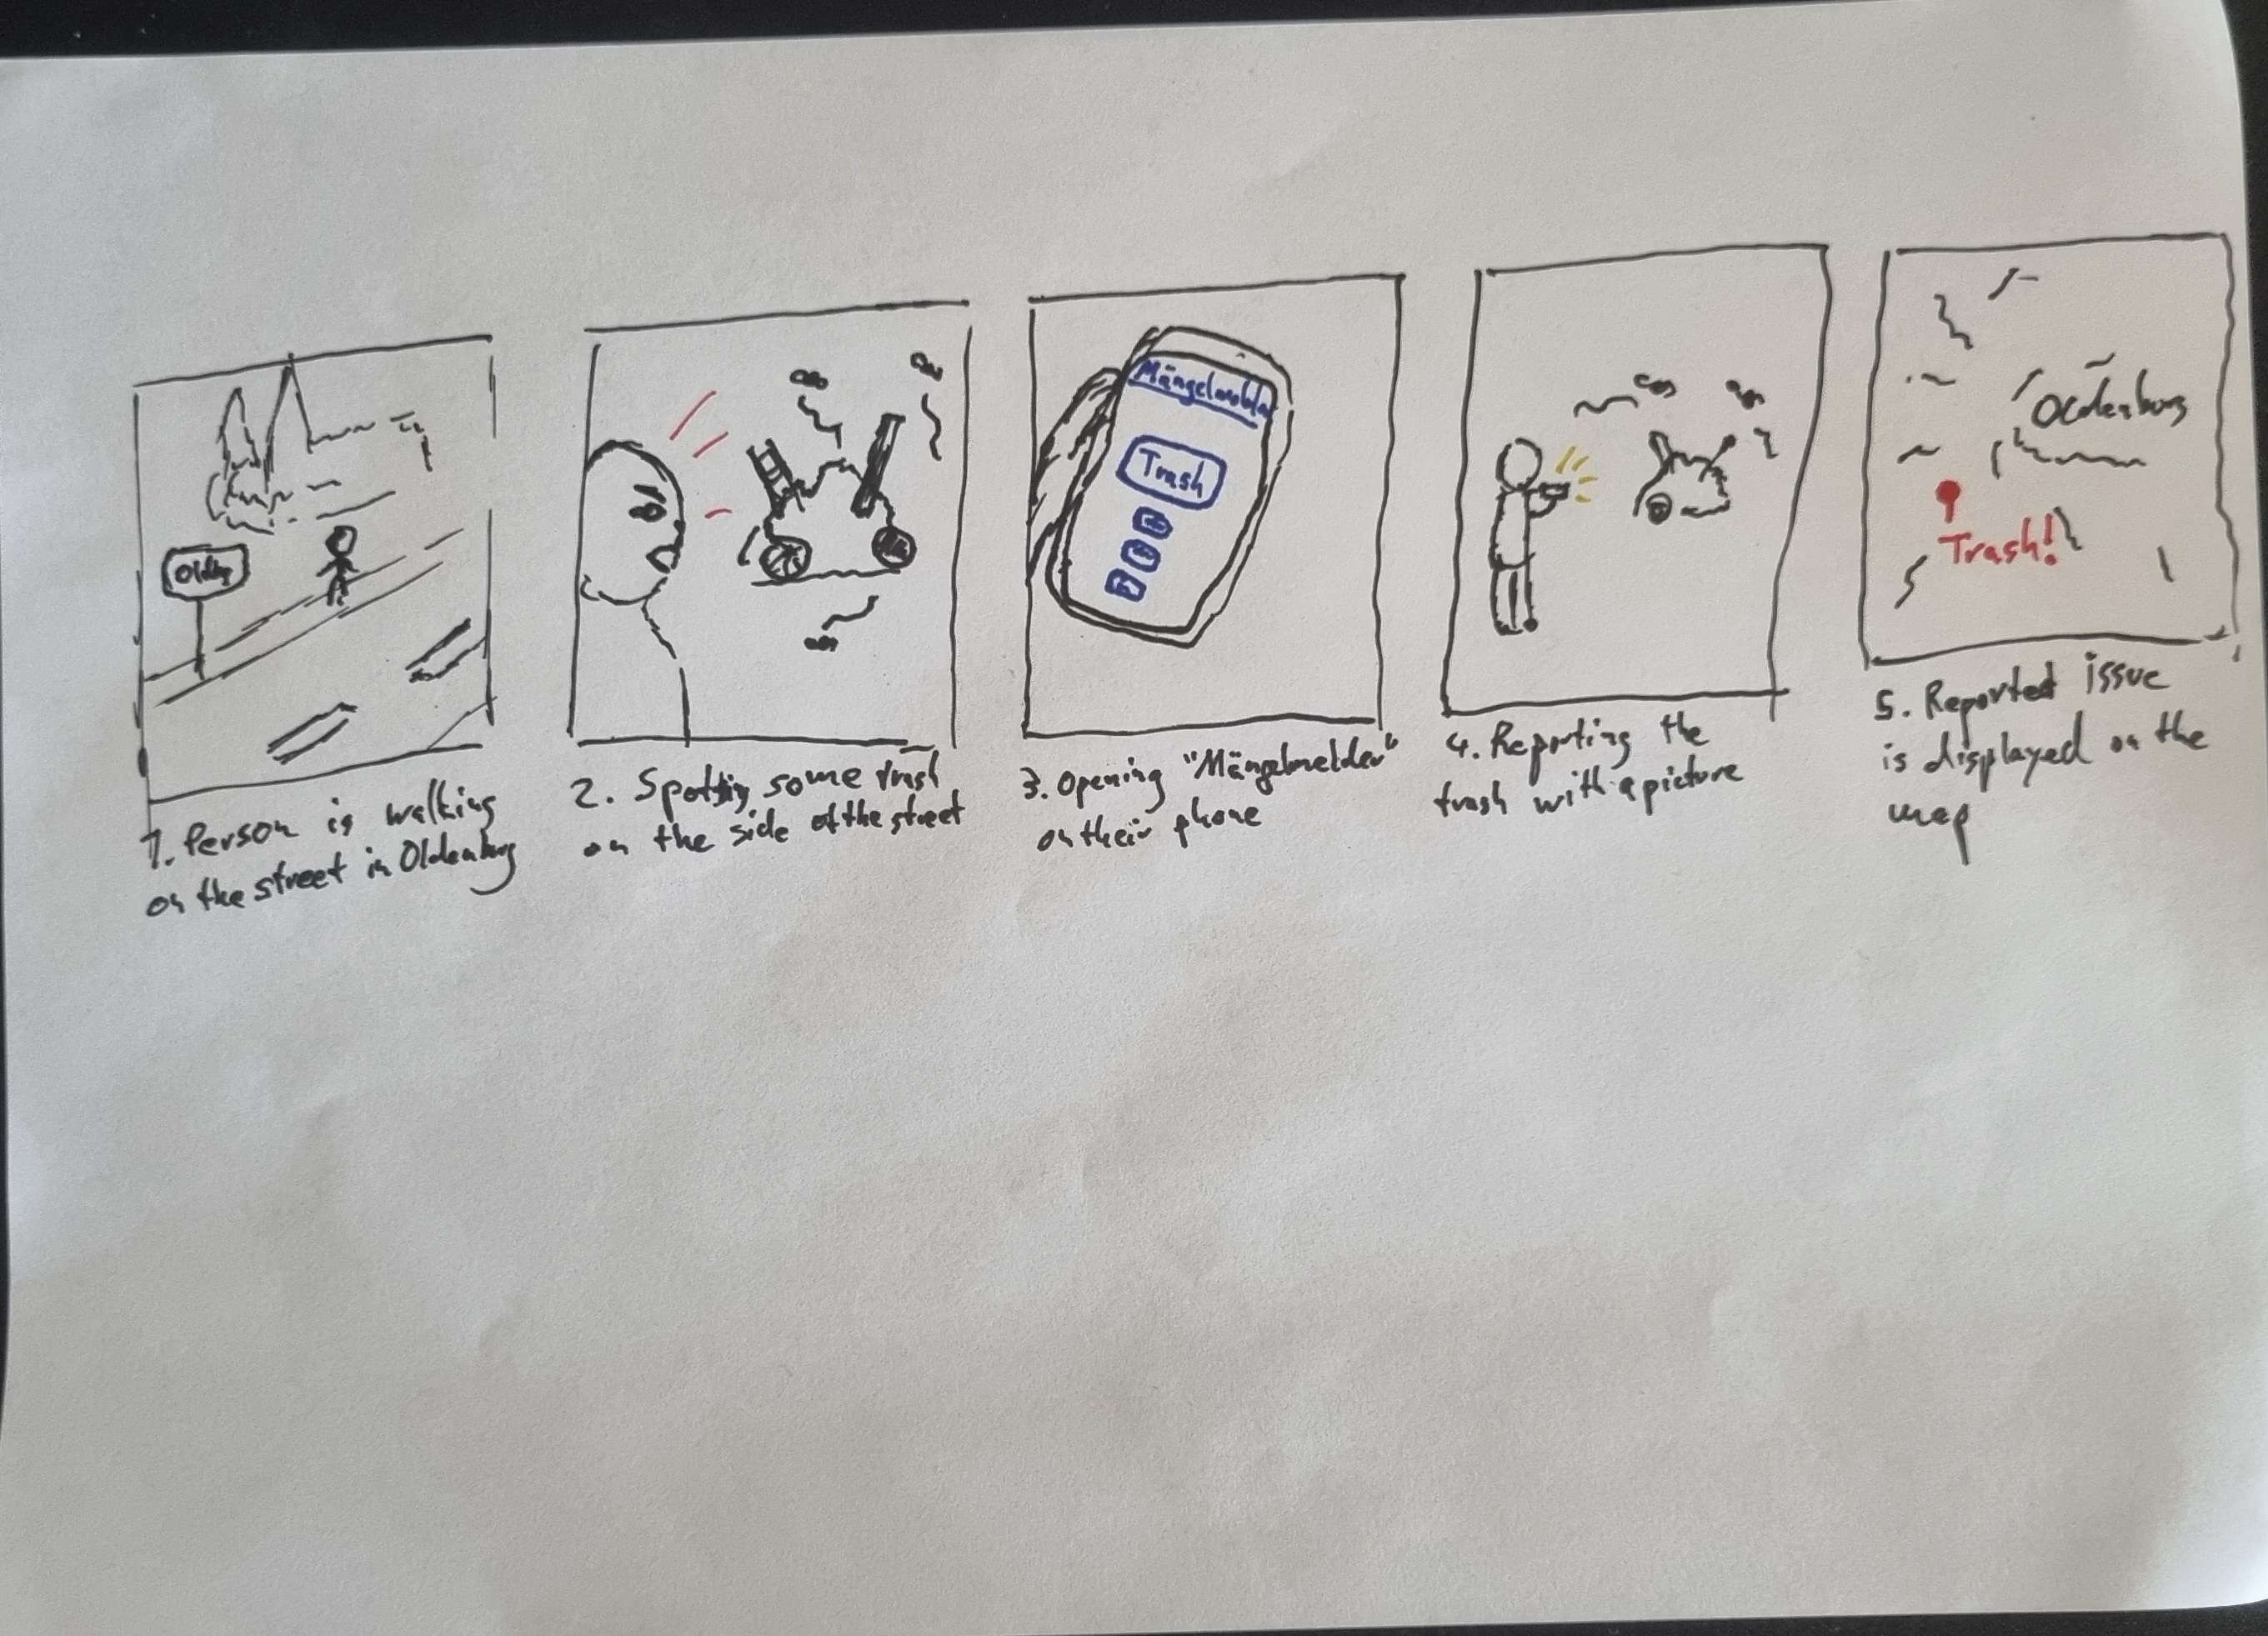 Oldbg
1. Person is walking
on the street in Oldenburg
2. Spotting some trash
on the side of the street
Mängelmelder
Trash
3. Opening "Mängelmelder"
on their phone
4. Reporting the
trash with a picture
Oldenburg
Trash!
5. Reported issue
is displayed on the
map